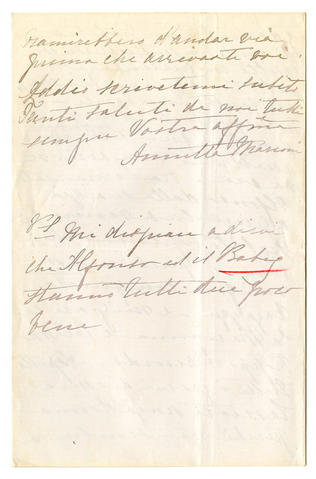 d'andar via
prima che arrivaste voi.
Addio scrivetemi subito
Tanti saluti da noi tutti
sempre Vostra affma
Annetta
PS Mi dispiace a dirvi
che Alfonso ed il Babbo
stanno tutti due poco
bene